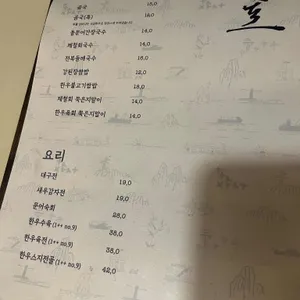 곰국 15,0
곰국(특) 18,0
돌문어간장국수 14,0
계절회국수 14,0
전복들깨국수 18,0
강된장쌈밥 12,0
한우불고기쌈밥 18,0
제철회 묵은지말이 14,0
한우육회 묵은지말이 14,0
요리
대구전 19,0
새우감자전 19,0
문어숙회 28,0
한우수육 (1++ no.9) 38,0
한우육전 (1++ no.9) 38,0
한우스지전골 (1++ no.9) 42,0